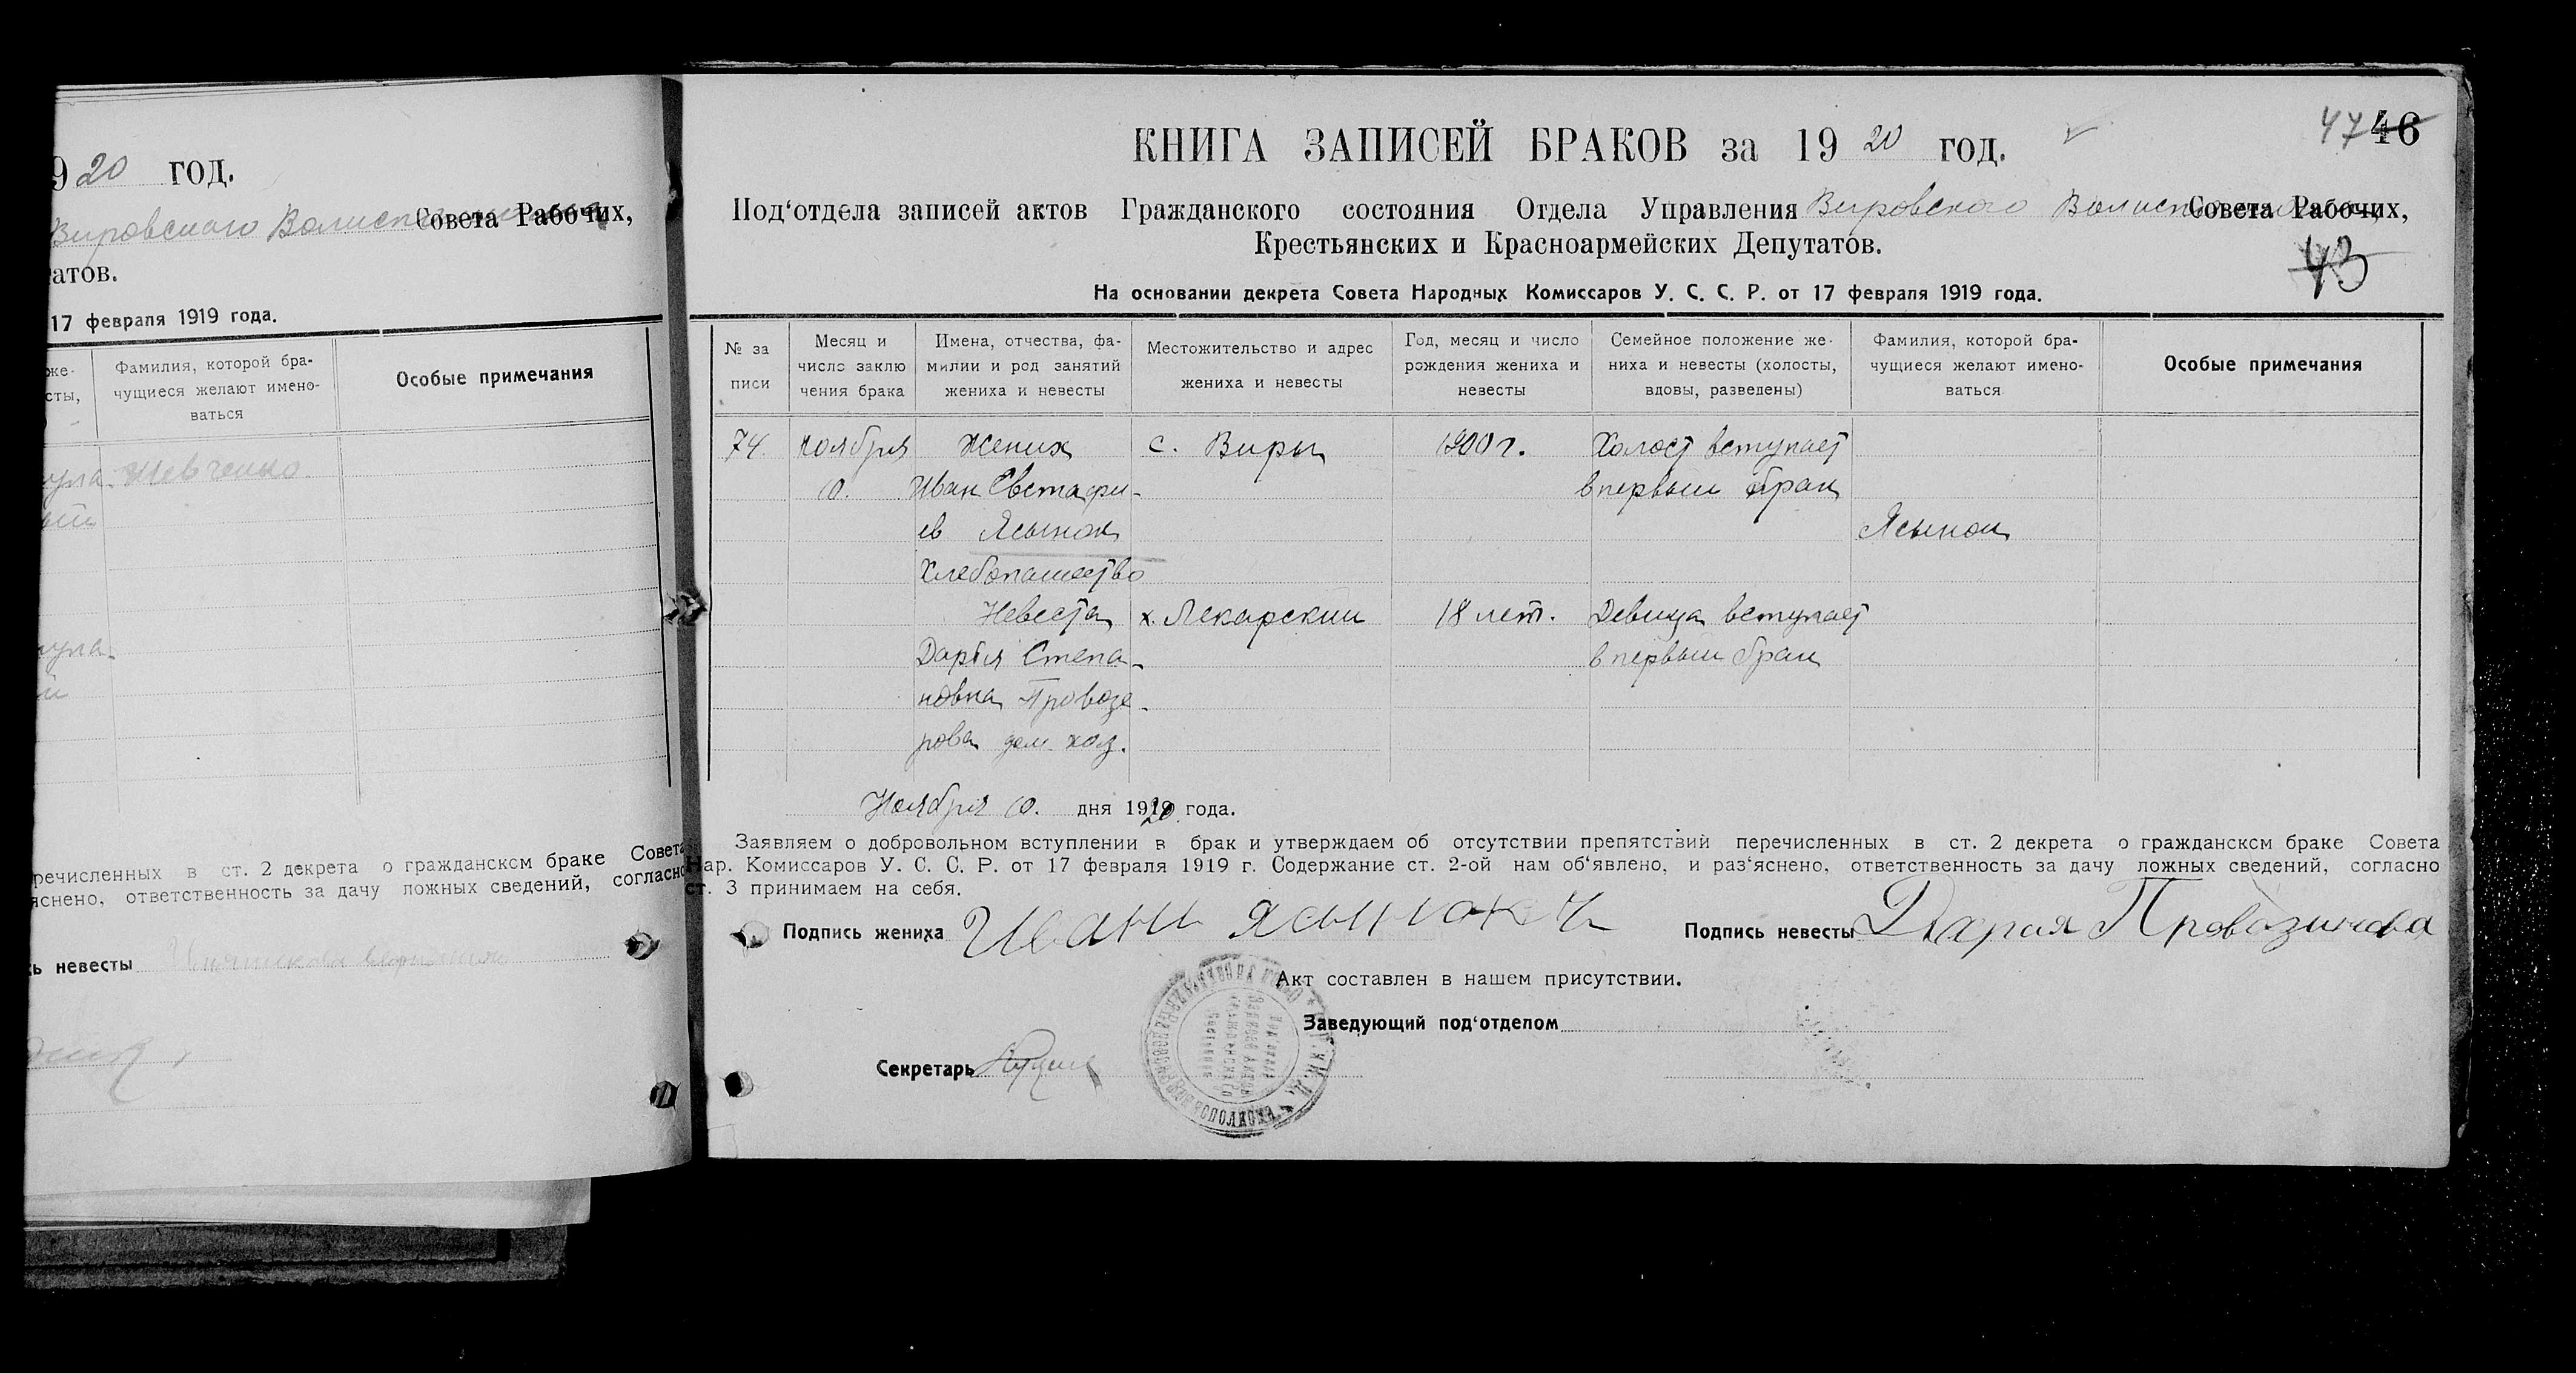 920 год.
Вировского
Совета Рабочих,
атов.
17 февраля 1919 года.
же-
сты,
Фамилия, которой бра-
чущиеся желают имено-
ваться
Особые примечания
Шевченко
речисленных в ст. 2 декрета о гражданском браке Совета
яснено, ответственность за дачу ложных сведений, согласно
ь невесты
47 46
КНИГА ЗАПИСЕЙ БРАКОВ за 1920 год.
Под'отдела записей актов Гражданского состояния Отдела Управления Вировского Совета Рабочих,
Крестьянских и Красноармейских Депутатов.
43
На основании декрета Совета Народных Комиссаров У. С. С. Р. от 17 февраля 1919 года.
№ за
писи
Месяц и
число заклю
чения брака
Имена, отчества, фа-
милии и род занятий
жениха и невесты
Местожительство и адрес
жениха и невесты
Год, месяц и число
рождения жениха и
невесты
Семейное положение же-
ниха и невесты (холосты,
вдовы, разведены)
Фамилия, которой бра-
чущиеся желают имено-
ваться
Особые примечания
74. ноября Жених с. Виры 1900 г. Холост вступает
10. Иван Евстафи- в первый брак
ев Ясынок Ясынок
Хлебопашество
Невеста х. Лекарский 18 лет. Девица вступает
Дарья Степа- в первый брак
новна Провозе-
рова дом. хоз.
Ноября 10. дня 1920 года.
Заявляем о добровольном вступлении в брак и утверждаем об отсутствии препятствий перечисленных в ст. 2 декрета о гражданском браке Совета
Нар. Комиссаров У. С. С. Р. от 17 февраля 1919 г. Содержание ст. 2-ой нам об'явлено, и раз'яснено, ответственность за дачу ложных сведений, согласно
ст. 3 принимаем на себя.
Подпись жениха Иванъ Подпись невесты Дария
Акт составлен в нашем присутствии.
Заведующий под'отделом
Секретарь